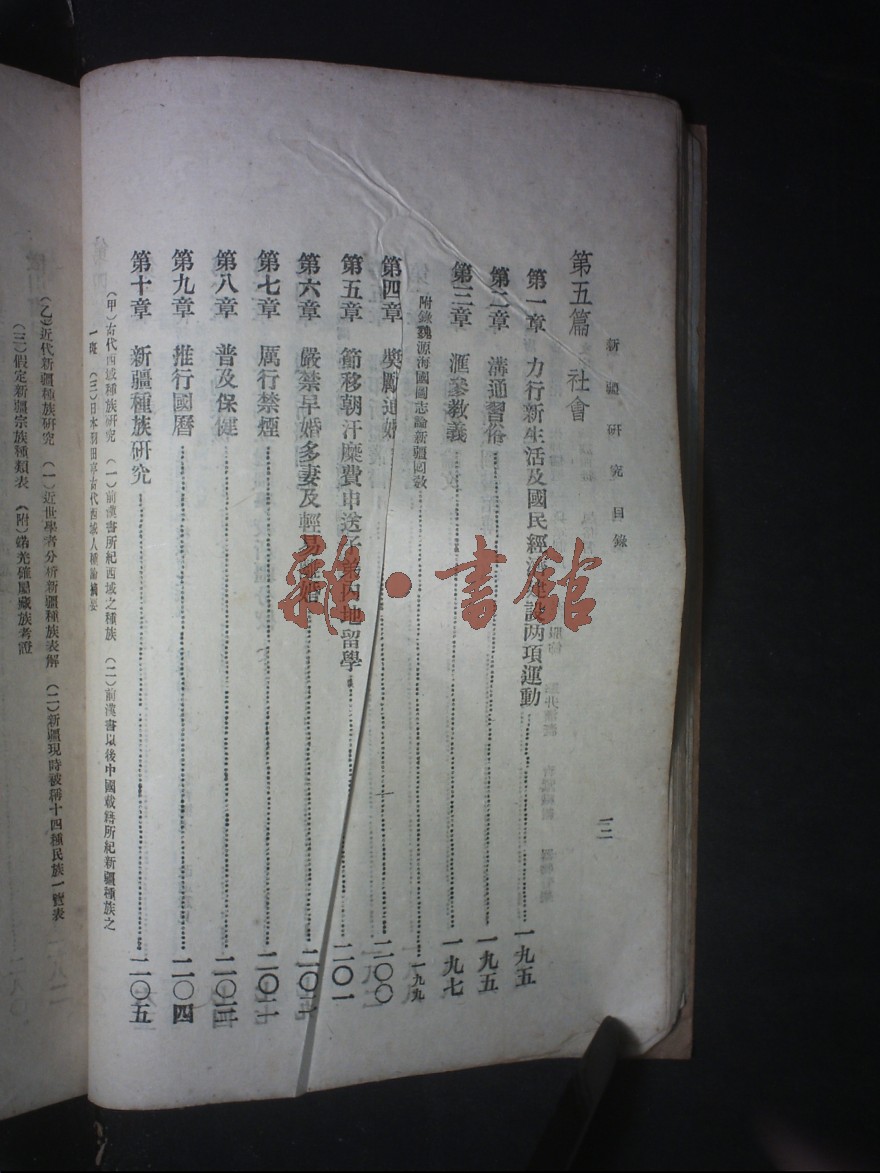 新疆研究目錄
一二
第五篇 社會
第一章 力行新生活及國民經濟建設兩項運動 一九五
第二章 溝通習俗 一九五
第三章 滙參教義 一九七
附錄魏源海國圖志論新疆回教 一九九
第四章 獎勵通婚 二〇〇
第五章 節移朝汗糜費申送子弟內地留學 二〇一
第六章 嚴禁早婚多妻及輕易離婚 二〇二
第七章 厲行禁煙
第八章 普及保健
第九章 推行國曆 二〇四
第十章 新疆種族研究 二〇五
(甲)古代西域種族研究 (一)前漢書所紀西域之種族 (二)前漢書以後中國載籍所紀新疆種族之
一斑 (三)日本羽田亨古代西域人種論摘要
(乙)近代新疆種族研究 (一)近世學者分析新疆種族表解 (二)新疆現時被稱十四種民族一覽表
(三)假定新疆宗族種類表 (附)婼羌確屬藏族考證
雜·書館